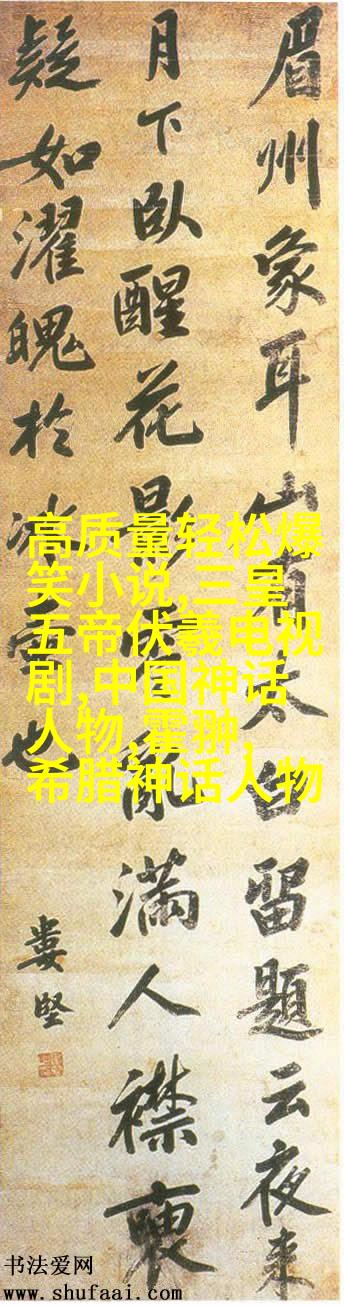 眉州象耳山有太白留題云夜来
月下臥醒花影零亂滿人襟
疑如濯魄於冰雪也
婁堅
高质量轻松爆
笑小说,三皇
五帝伏羲电视
剧,中国神话
人物,霍翀,
希腊神话人物
书法爱网
www.shufaai.com